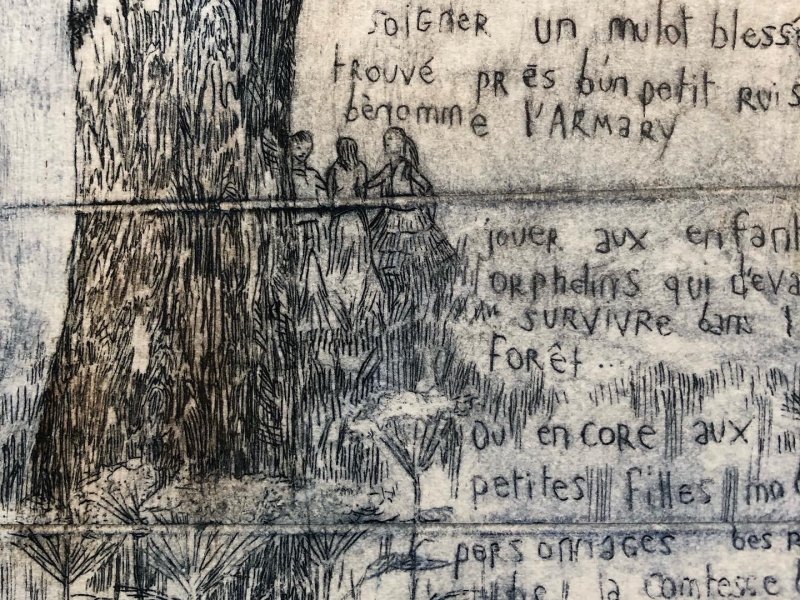 soigner un mulot blessé
trouvé près d'un petit ruis
dénommé l'ARMARY
jouer aux enfant
orphelins qui deva
SURVIVRE dans l
forêt...
ou encore aux
petites filles mo
personnages des r
la comtesse